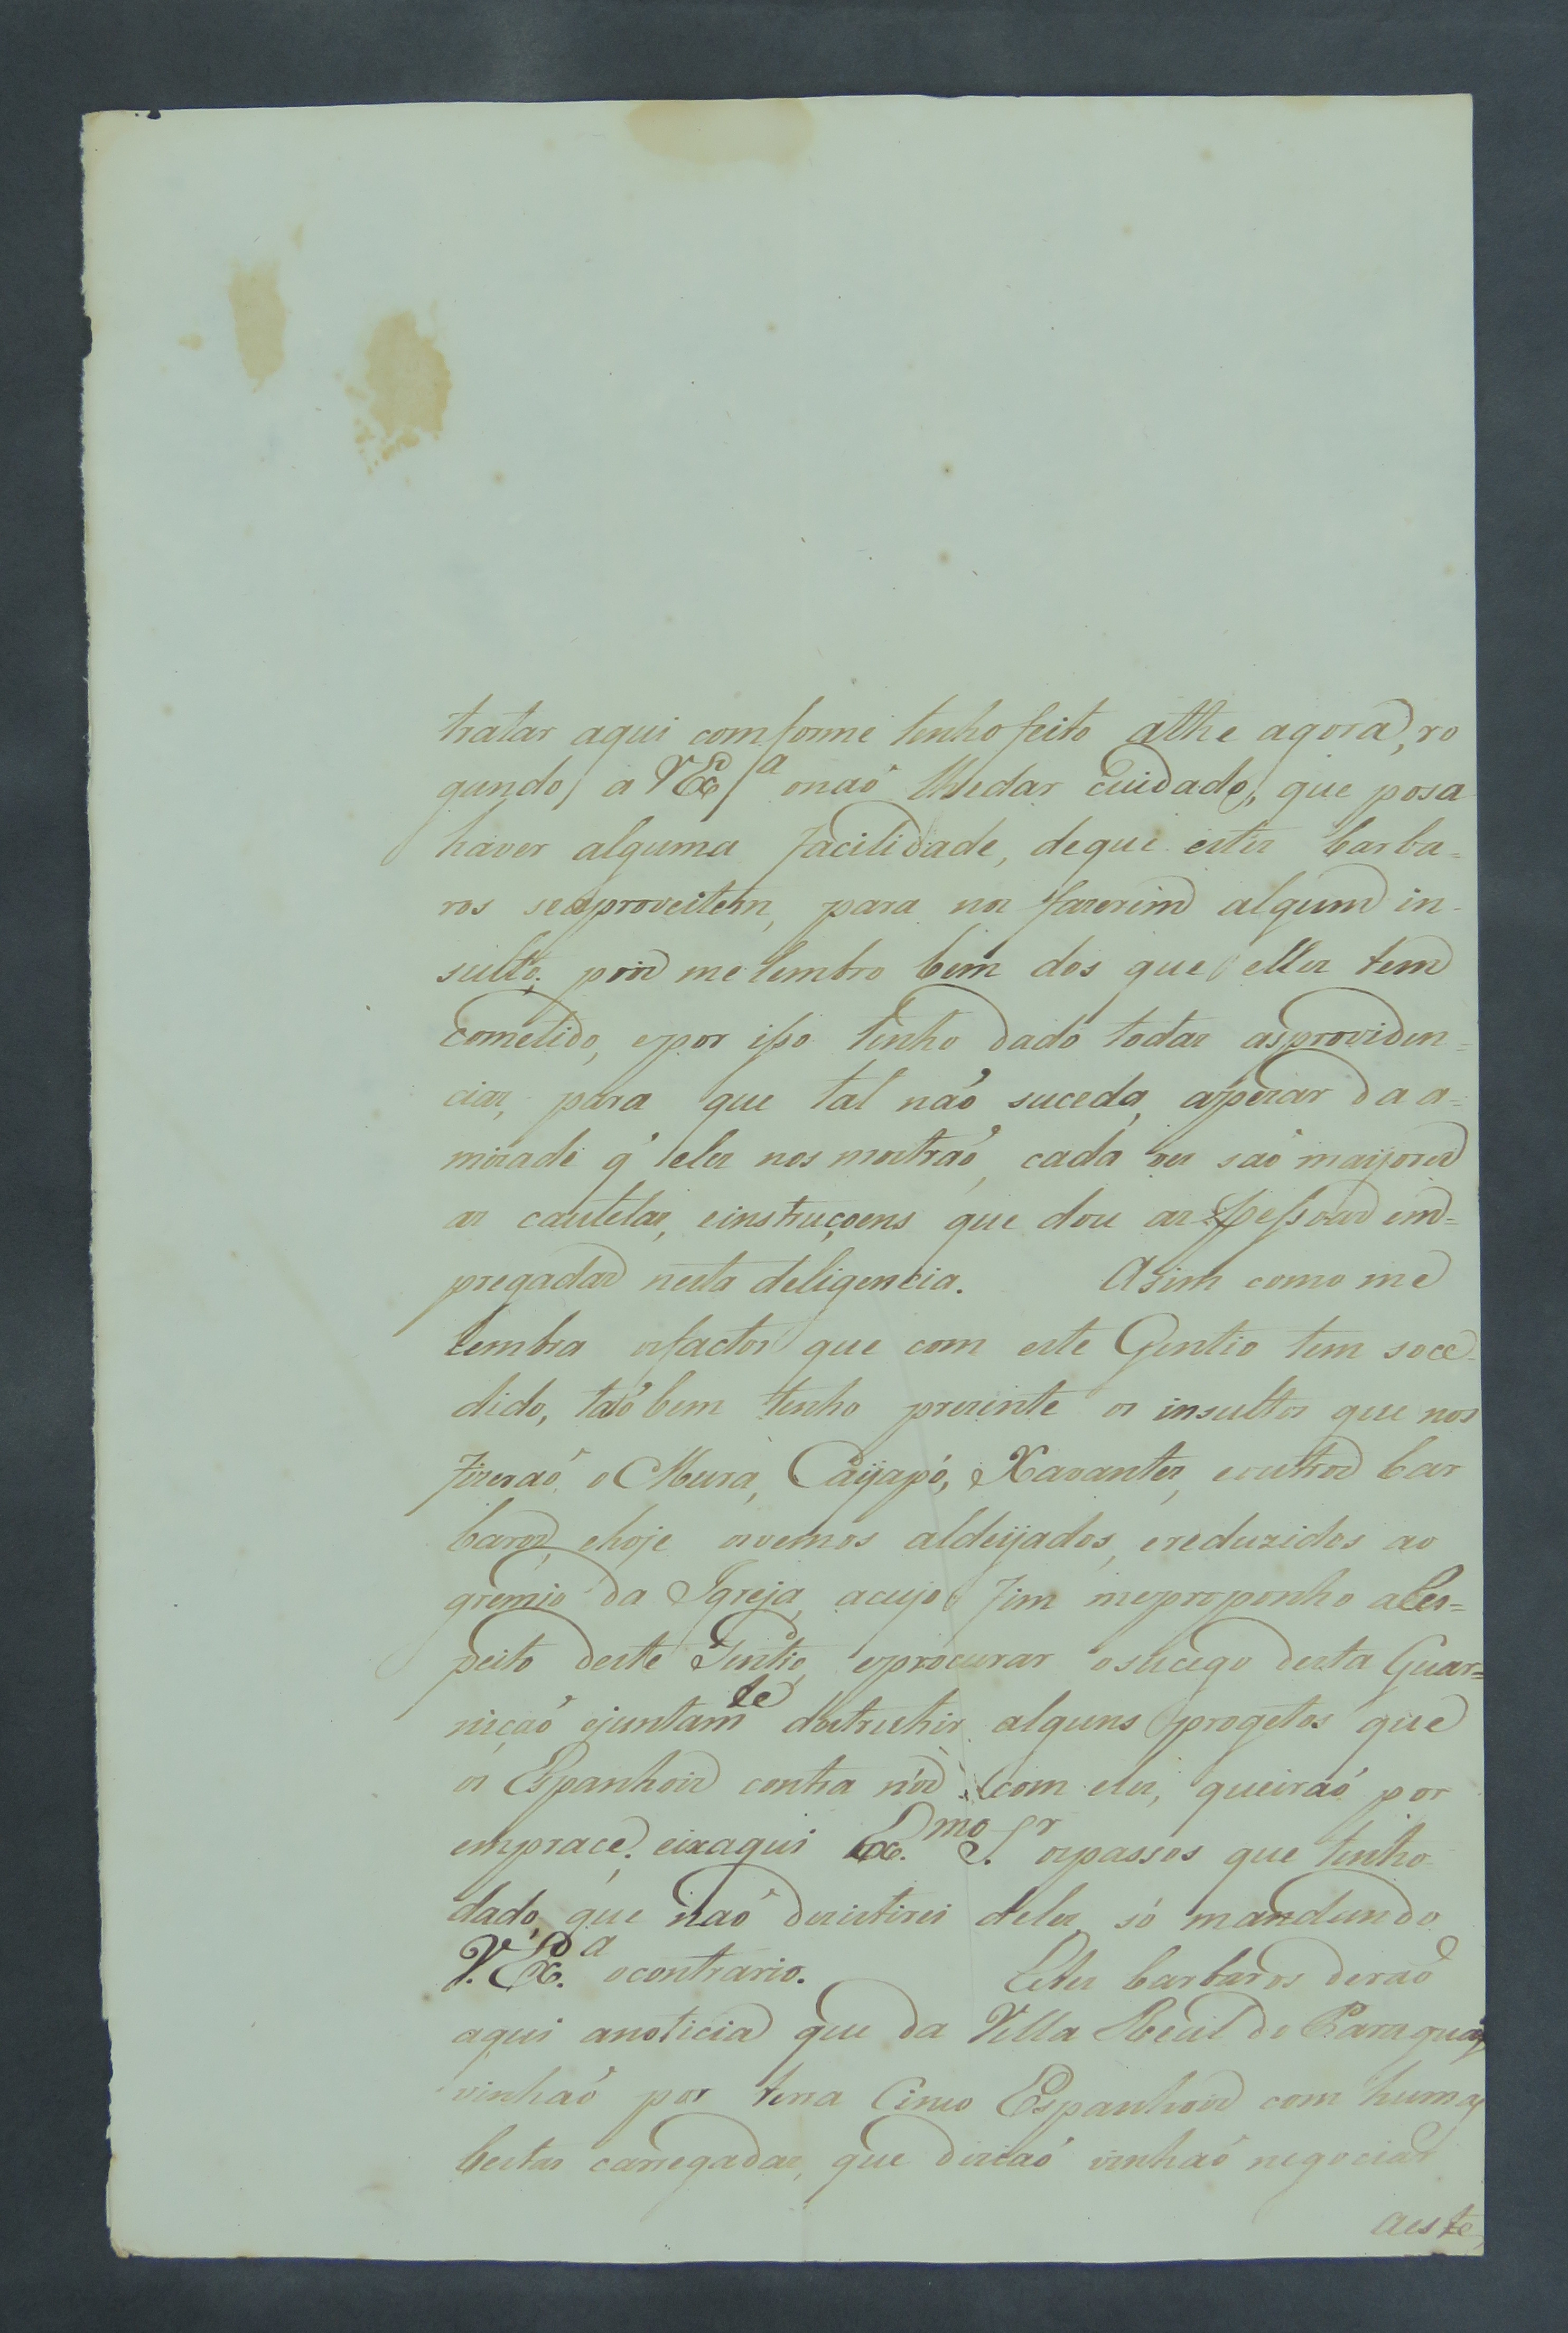 tratar aqui comforme tenho feito athe agora, ro
gando a VEx.ª onaõ lhedar cuidado, que posa
haver alguma facilidade, deque estes barba=
ros seaproveitem, para nos fazerem algum in-
sulto; pois me lembro bem dos que elles tem
cometido, epor ißo tenho dado todas asproviden=
cias, para que tal naõ suceda, apezar da a=
mizade q' eles nos mostraõ, cada ves saõ maijores
as cautelas, einstruçoens que dou as peßoas em=
pregadas nesta deligencia. Asim como me
lembra osfactos que com este Gentio tem soce-
dido, taõbem tenho prezente os insultos que nos
fizeraõ o Mura, Caijapó, Xavantes, eoutros bar
baros, ehoje osvemos aldeijados, ereduzidos ao
gremio da Igreja, acujo fim meproponho ares=
peito deste Gentio, eprocurar osucego desta Guar=
niçaõ ejuntam.te destruhir alguns progetos que
os Espanhois contra nós com eles, queiraõ por
emprace. eisaqui Ex.mo S.r ospassos que tenho
dado, que naõ dezistirei deles só mandando
V.Ex.ª ocontrario. Estes barbaros deraõ
aqui anoticia que da Villa Real do Paraguay
vinhaõ por terra Cinco Espanhois com humas
bestas carregadas, que diziaõ vinhaõ negociar
aeste